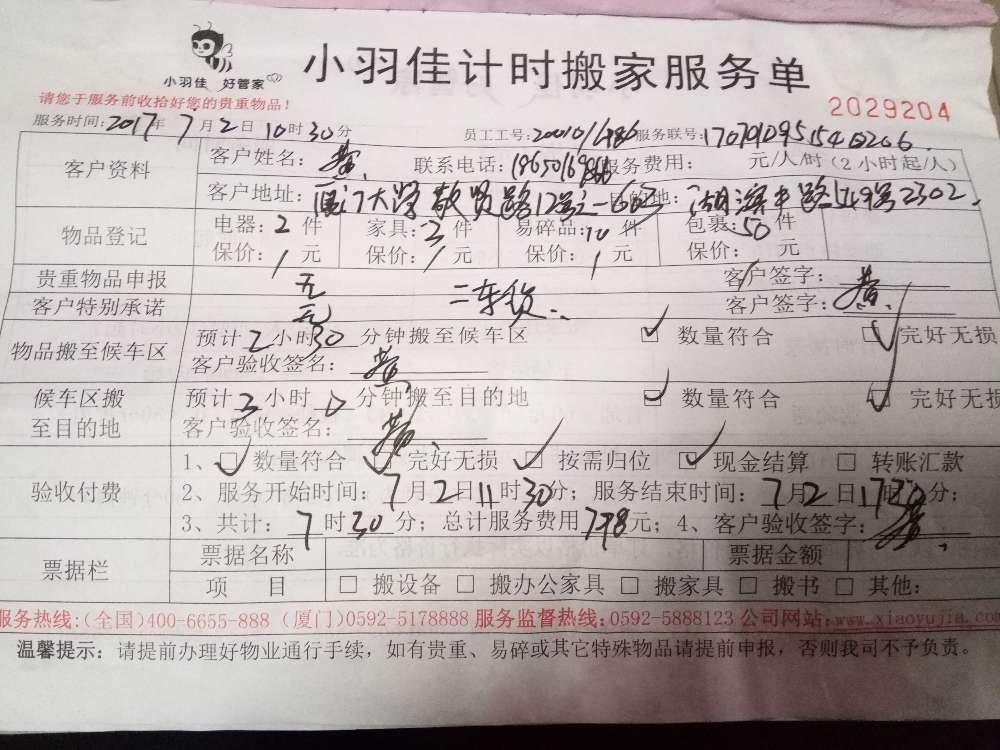 小羽佳 好管家
小羽佳计时搬家服务单
请您于服务前收拾好您的贵重物品！
2029204
服务时间：2017年7月2日10时30分 员工工号：20010/486 服务联号：
客户资料 客户姓名：黄 联系电话： 服务费用： 元/人/时（2小时起/人）
客户地址：厦门大学敬贤路12号 目的地：湖滨中路 2302
物品登记 电器：2件 家具：3件 易碎品：10件 包裹：50件
保价：1元 保价：1元 保价：1元 保价： 元
贵重物品申报 无 客户签字：
客户特别承诺 无 二车货 客户签字：黄
物品搬至候车区 预计2小时30分钟搬至候车区 数量符合 完好无损
客户验收签名：黄
候车区搬至目的地 预计3小时0分钟搬至目的地 数量符合 完好无损
客户验收签名：黄
验收付费 1、数量符合 完好无损 按需归位 现金结算 转账汇款
2、服务开始时间：7月2日11时30分；服务结束时间：7月2日17 30分；
3、共计：7时30分；总计服务费用798元；4、客户验收签字：黄
票据栏 票据名称 票据金额
项 目 搬设备 搬办公家具 搬家具 搬书 其他：
服务热线：(全国)400-6655-888 (厦门)0592-5178888 服务监督热线：0592-5888123 公司网站：www.xiaoyujia.com
温馨提示：请提前办理好物业通行手续，如有贵重、易碎或其它特殊物品请提前申报，否则我司不予负责。